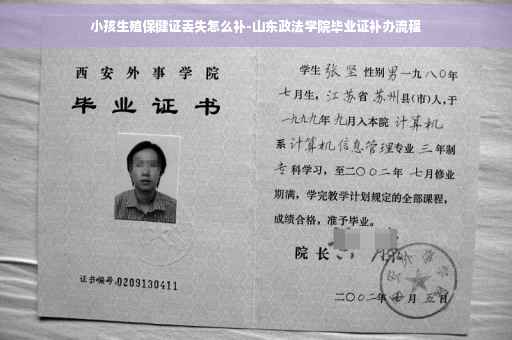 小孩生殖保健证丢失怎么补-山东政法学院毕业证补办流程
西安外事学院
毕业证书
证书编号:0209130411
学生 张坚 性别 男 一九八〇年
七月生，江苏省 苏州县(市)人，于
一九九九年 九月入本院 计算机
系 计算机信息管理专业 三 年制
专科学习，至二〇〇二年 七月修业
期满，学完教学计划规定的全部课程，
成绩合格，准予毕业。
院长
二〇〇二年 月 五日